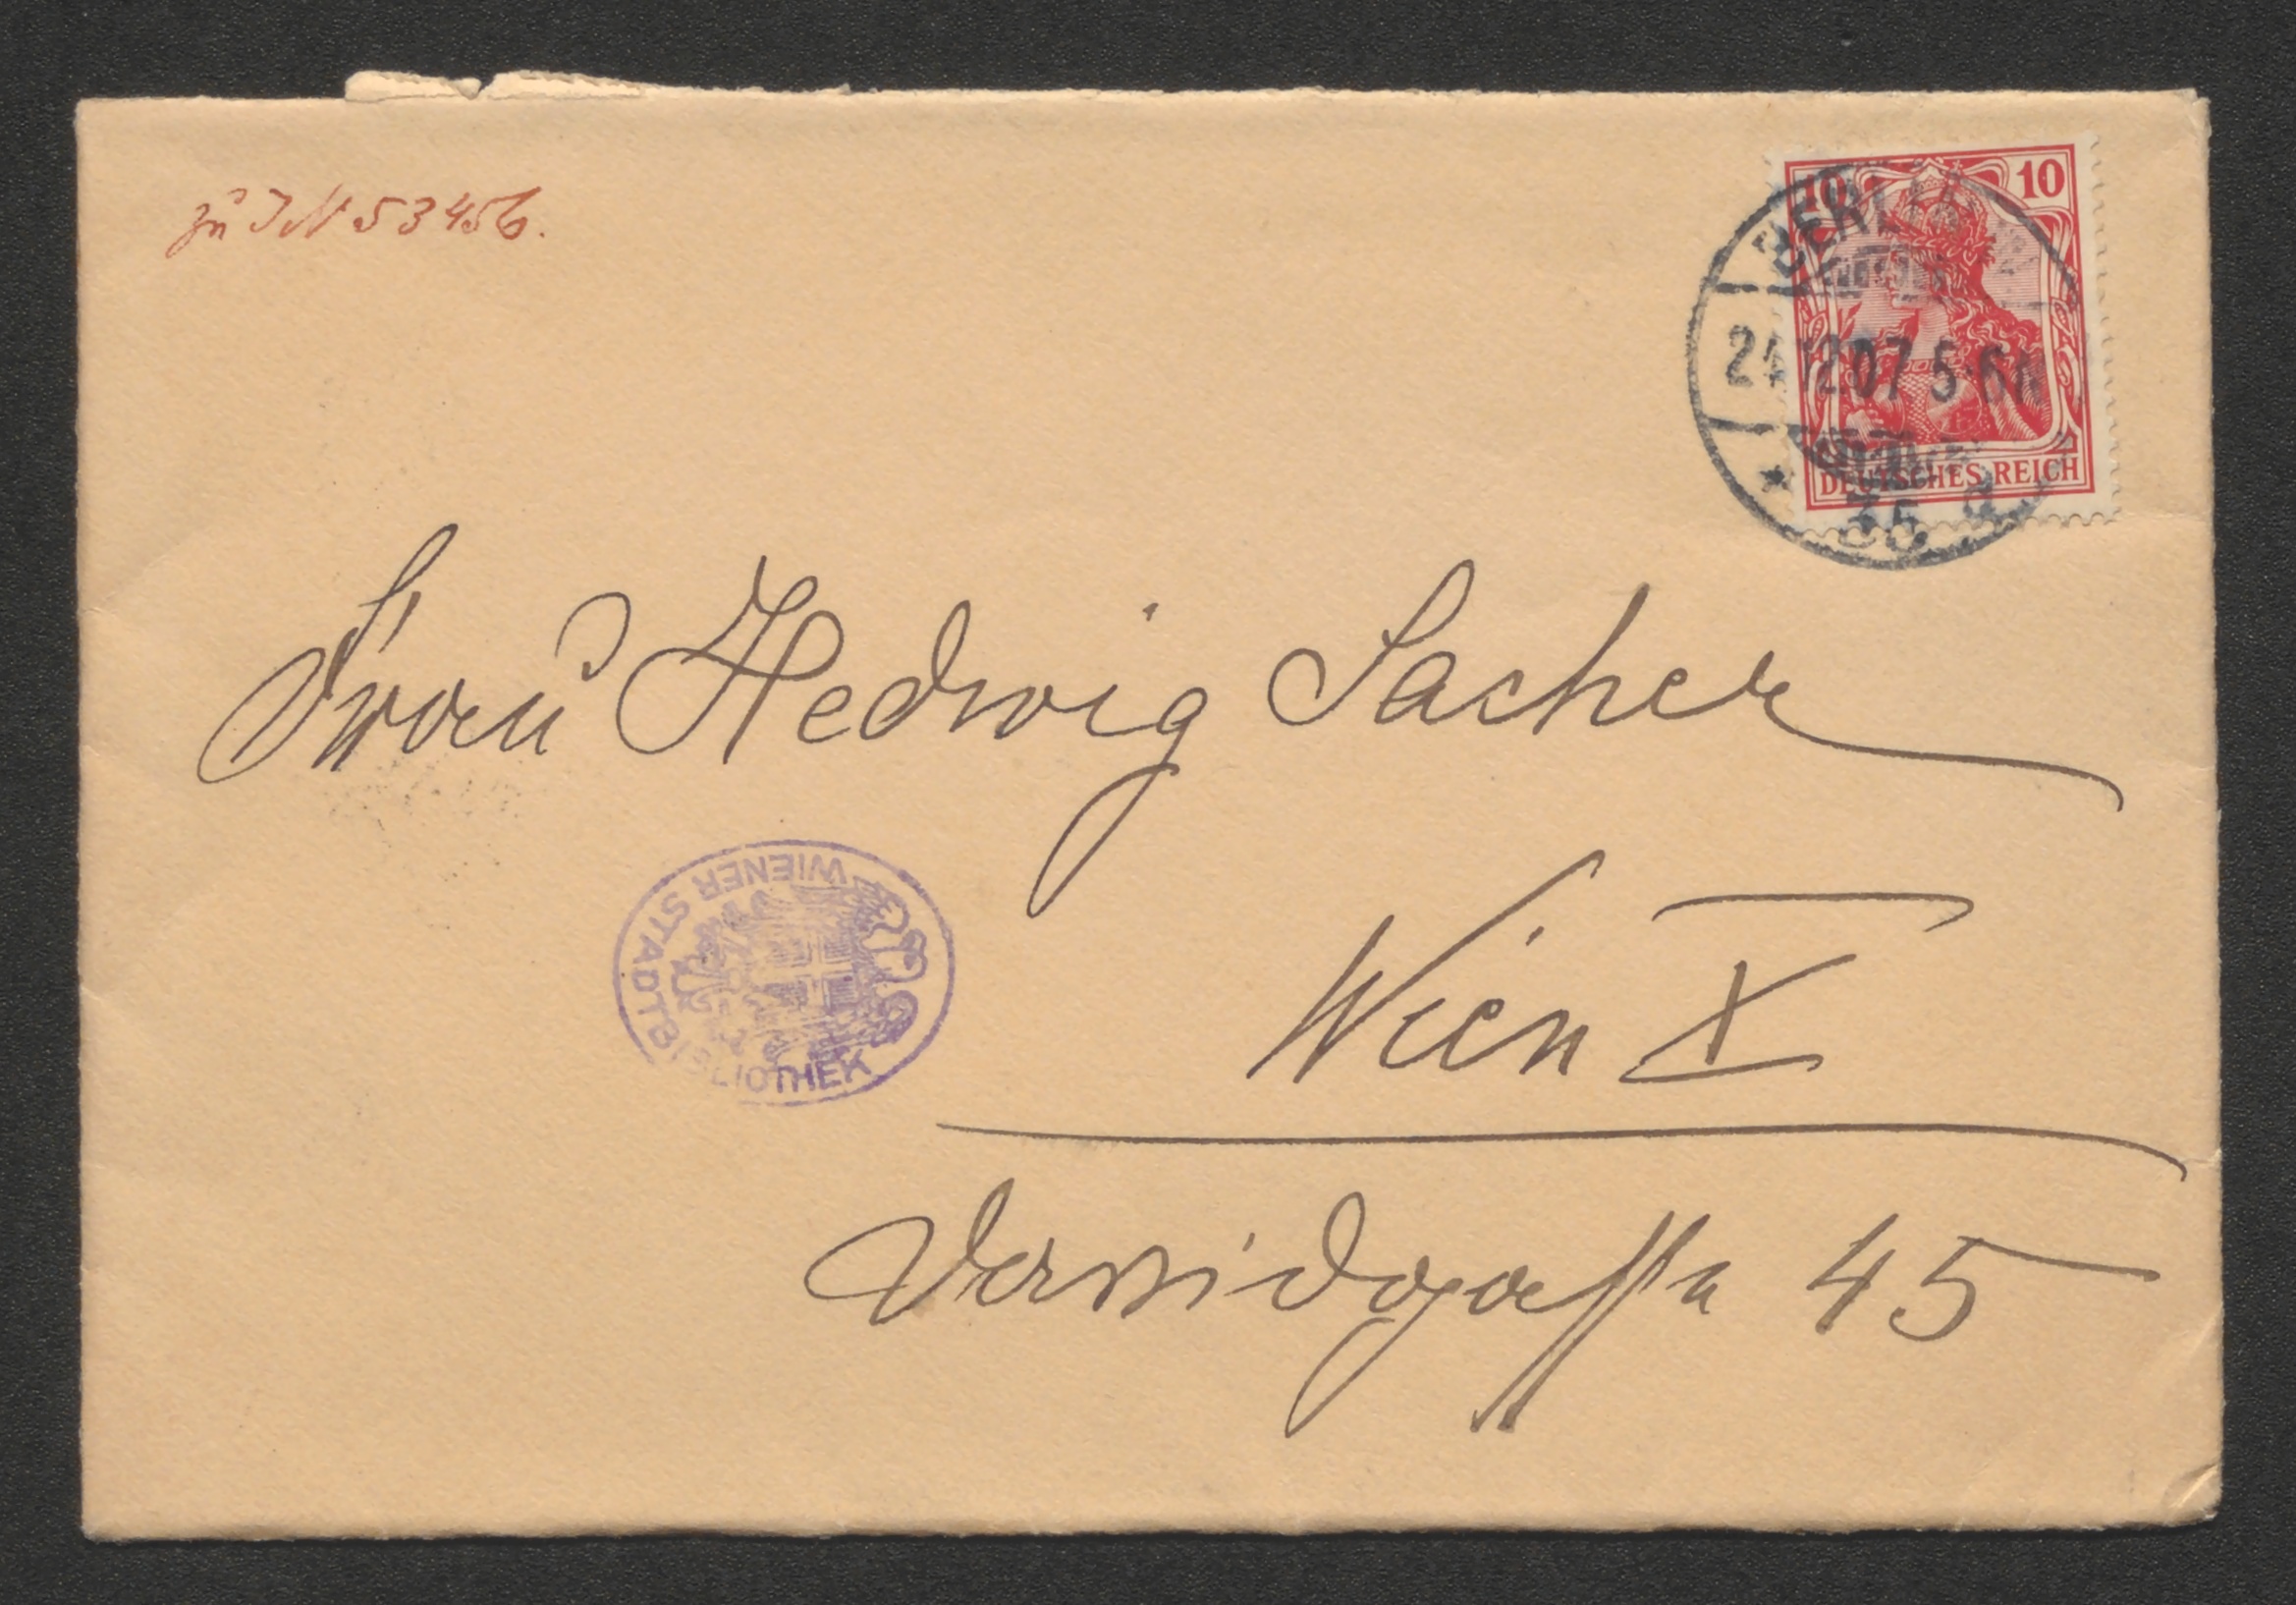 zu IN 53456.
10 10
BERLIN
24.12.07 5-6N
* 35
DEUTSCHES REICH
Frau Hedwig Sacher
WIENER STADTBIBLIOTHEK
Wien X
Davidgasse 45